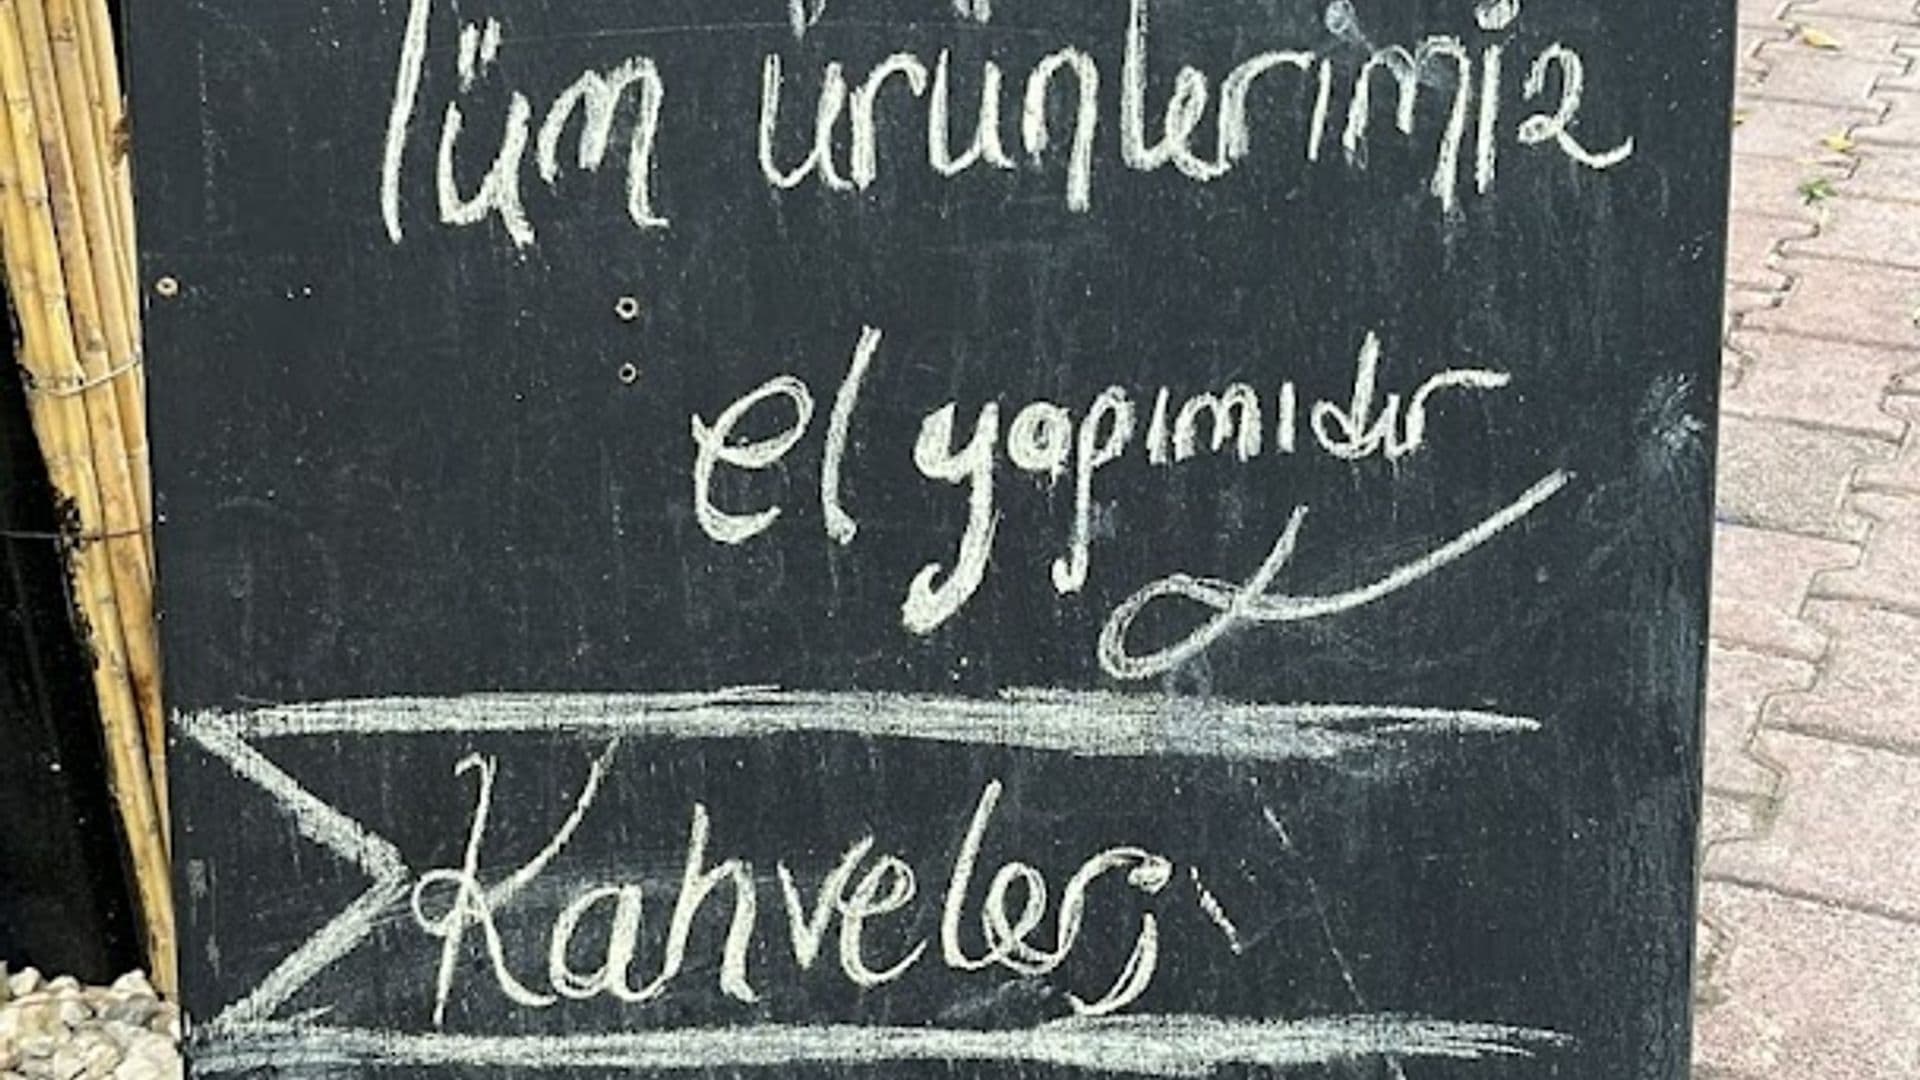 Tüm ürünlerimiz
el yapımıdır
Kahveler;